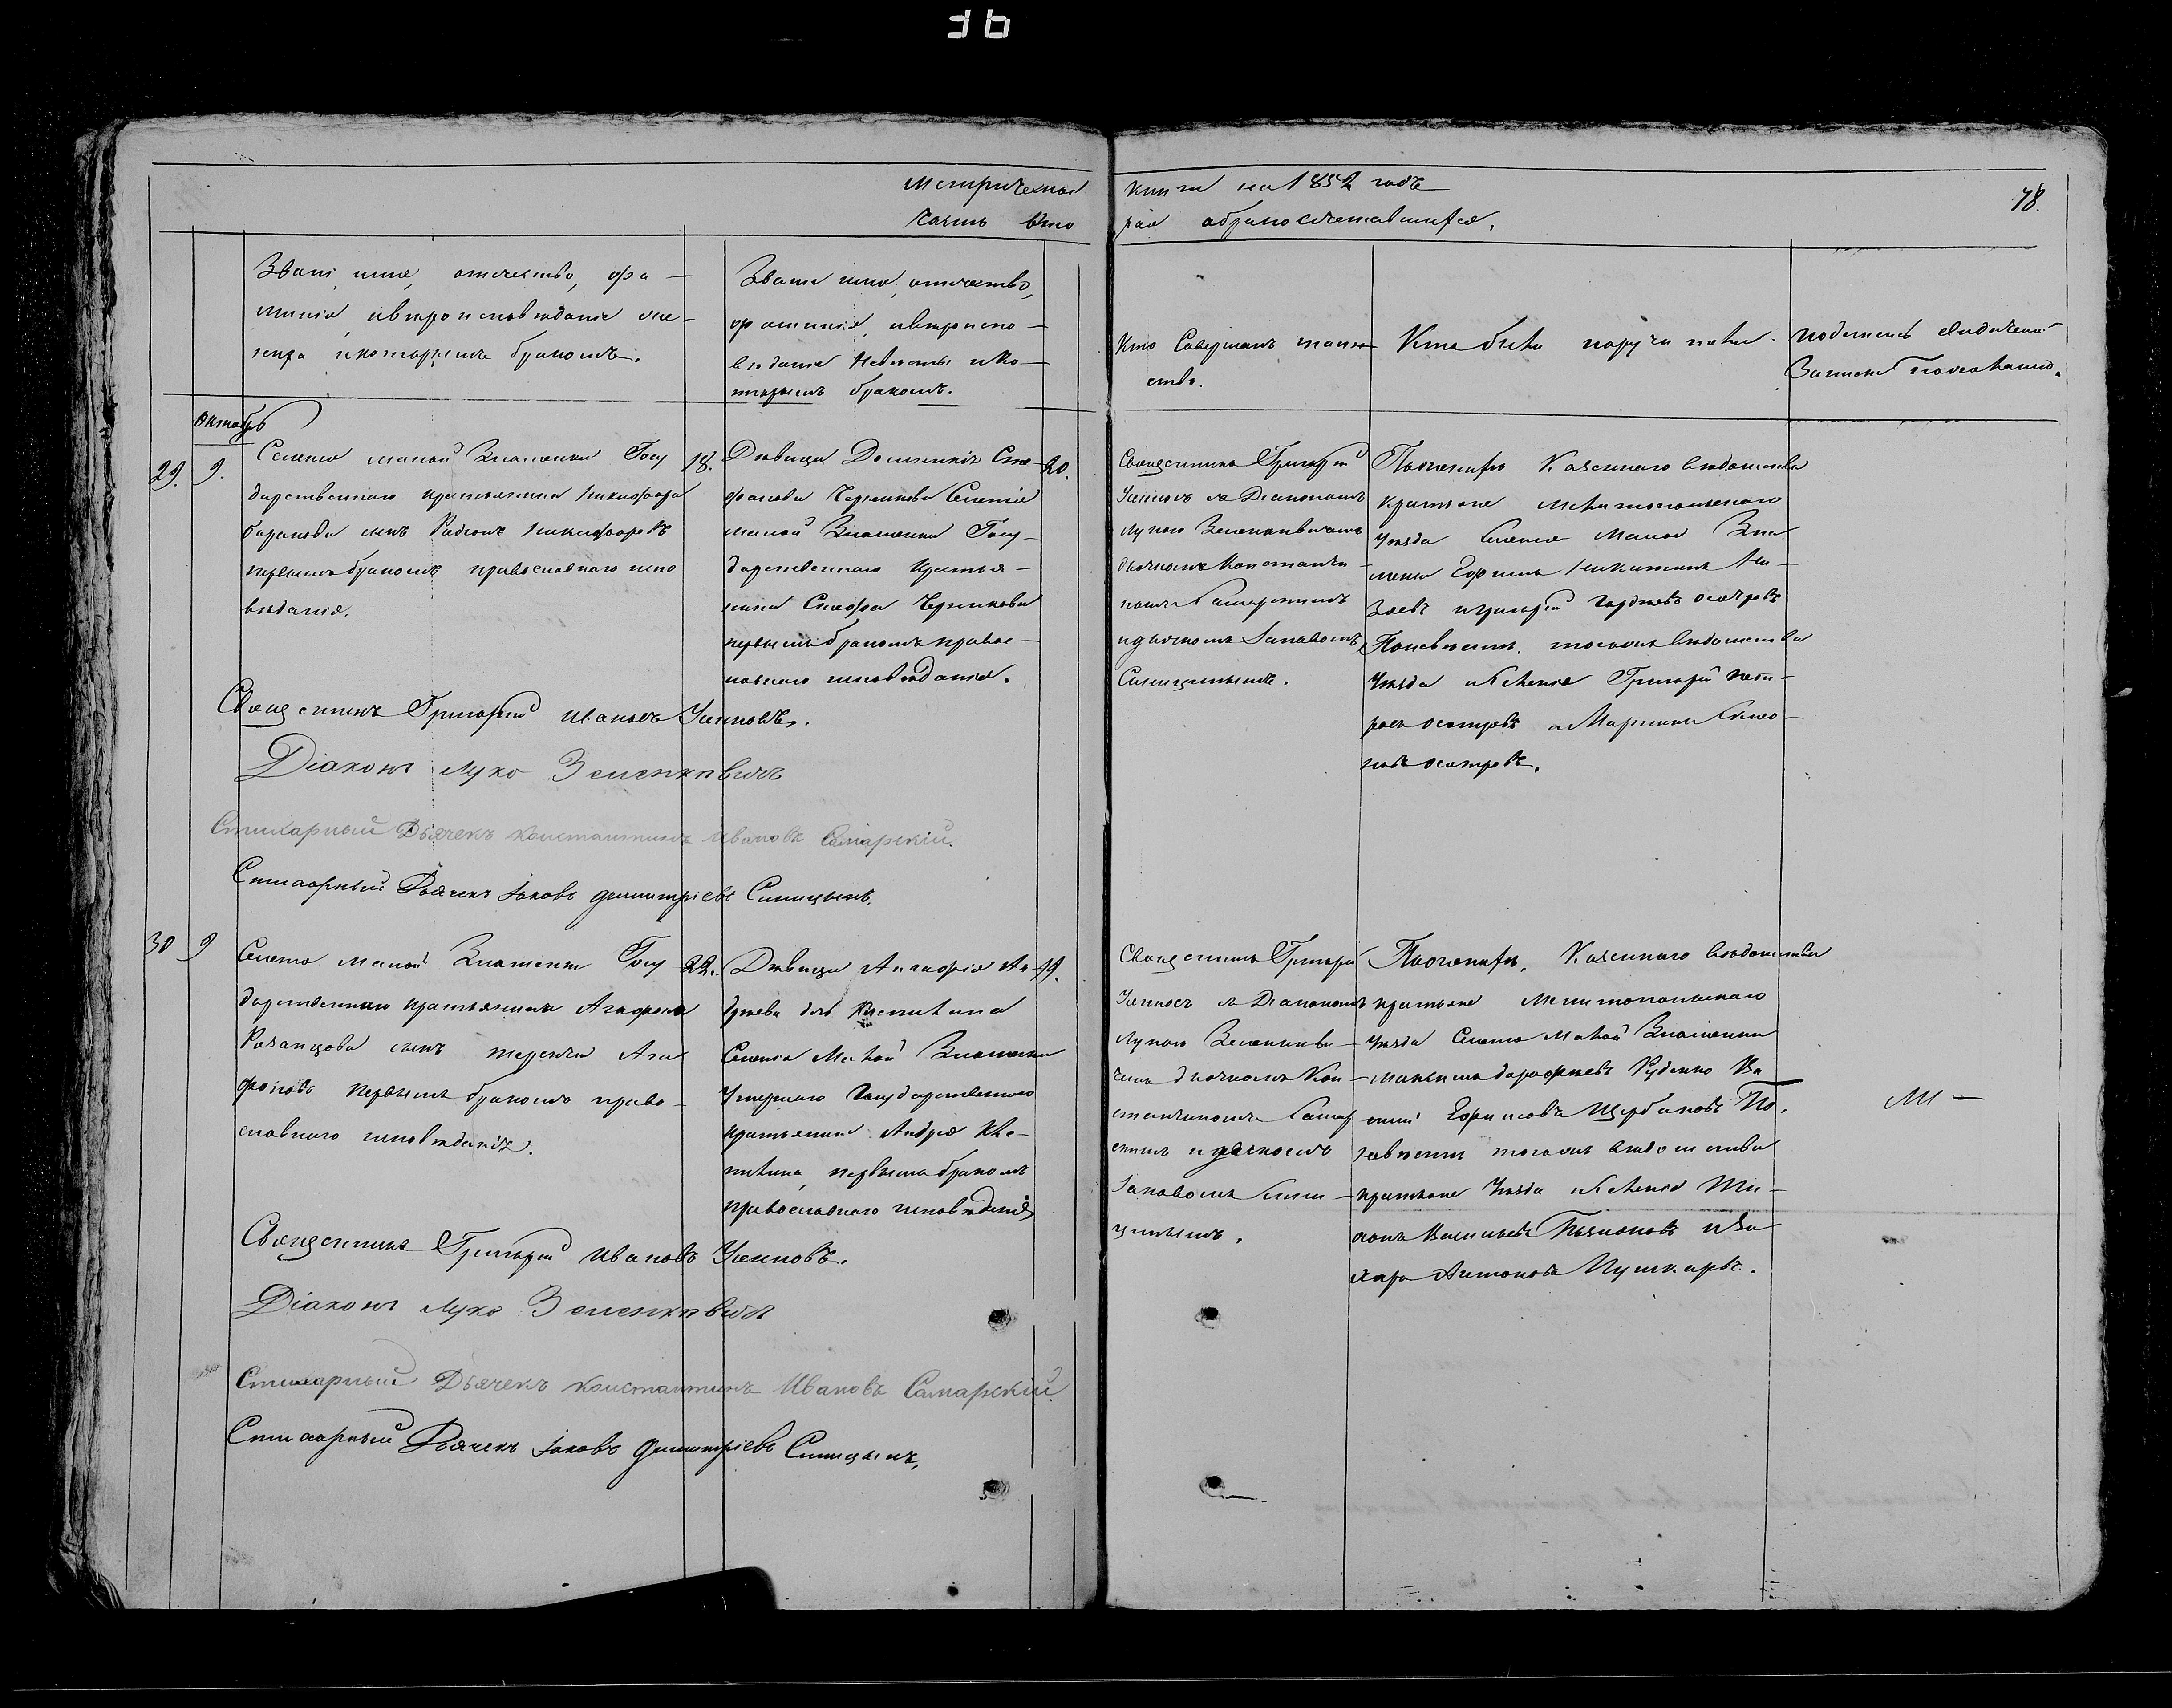 Метрической книги на 1852 годъ
78.
Часть вто рая о бракосочетавшихся.
Званіе, имя, отечество, фа-
милія, и вероисповѣданіе же-
ниха и которымъ бракомъ.
Званіе имя, отечество,
фамилія, и вероиспо-
вѣданіе Невѣсты и Ко-
торымъ бракомъ.
Кто Совершалъ таин-
ство.
Кто были поручители.
Подпись свидѣтелей
Записи по желанію.
Октябрь
29. 9.
Селенія малой Знаменки Госу
дарственнаго крестьянина Никифора
баранова сынъ Родіонъ Никифоровъ
первымъ бракомъ православнаго испо
вѣданія.
18.
Дѣвица Домникія Сте-
фанова Черникова Селенія
малой Знаменки Госу-
дарственнаго Крестья-
нина Стефана Черникова
первымъ бракомъ правос-
лавнаго исповѣданія.
20.
Священникъ Григорій
съ Діакономъ
Лукою Зеленкевичемъ
дьячкомъ Константи-
номъ Самарскимъ
и дьячкомъ Іаковомъ
Синицынымъ.
По женихѣ Казеннаго вѣдомства
крестьяне Мелитопольскаго
Уѣзда Селенія Малой Зна
менки Никитинъ
и Григорій осетровъ
По невѣстѣ того же вѣдомства
Уѣзда и Селенія Григорій
осетровъ и Мартинъ
осетровъ.
Священникъ Григорій Ивановъ
Діаконъ Лука Зеленкевичъ
Стихарный Дьячекъ Константинъ Ивановъ Самарскій.
Стихарный Дьячекъ Іаковъ Димитріевъ Синицынъ.
30 9
Селенія малой Знаменки Госу
дарственнаго крестьянина Агафона
Казанцова сынъ терентій Ага
фоновъ первымъ бракомъ право-
славнаго исповѣданія.
22.
Дѣвица Агафія Ан-
дреева дочь
Селенія Малой Знаменки
Умершаго Государственнаго
крестьянина Андрея
первымъ бракомъ
православнаго исповѣданія
19.
Священникъ Григорій
съ Діакономъ
Лукою Зеленкеви-
чемъ дьячкомъ Кон-
стантиномъ Самар
скимъ и дьячкомъ
Іаковомъ Сини-
цынымъ.
По женихѣ, Казеннаго вѣдомства
крестьяне Мелитопольскаго
Уѣзда Селенія Малой Знаменки
Максимъ дорофеевъ Руденко Ва
силій Щербаковъ По
невѣстѣ того же вѣдомства
крестьяне Уѣзда и Селенія Ти-
хонъ Васильевъ и За
харъ Антоновъ Пушкаръ.
Священникъ Григорій Ивановъ
Діаконъ Лука Зеленкевичъ
Стихарный Дьячекъ Константинъ Ивановъ Самарскій
Стихарный Дьячекъ Іаковъ Димитріевъ Синицынъ,